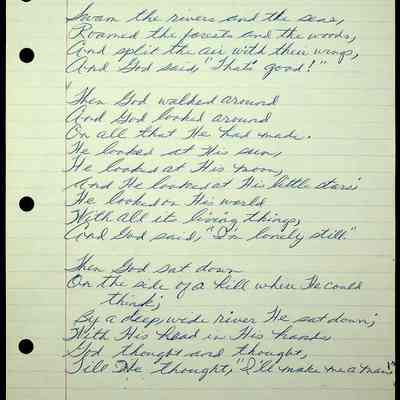 Swam the rivers and the seas,
Roamed the forests and the woods,
And split the air with their wings,
And God said, "That's good!"
Then God walked around
And God looked around
On all that He had made.
He looked at His sun,
He looked at His moon,
And He looked at His little stars;
He looked on His world
With all its living things,
And God said, "I'm lonely still."
Then God sat down
On the side of a hill where He could
think;
By a deep, wide river He sat down;
With His head in His hands
God thought and thought,
Till He thought, "I'll make me a man!"